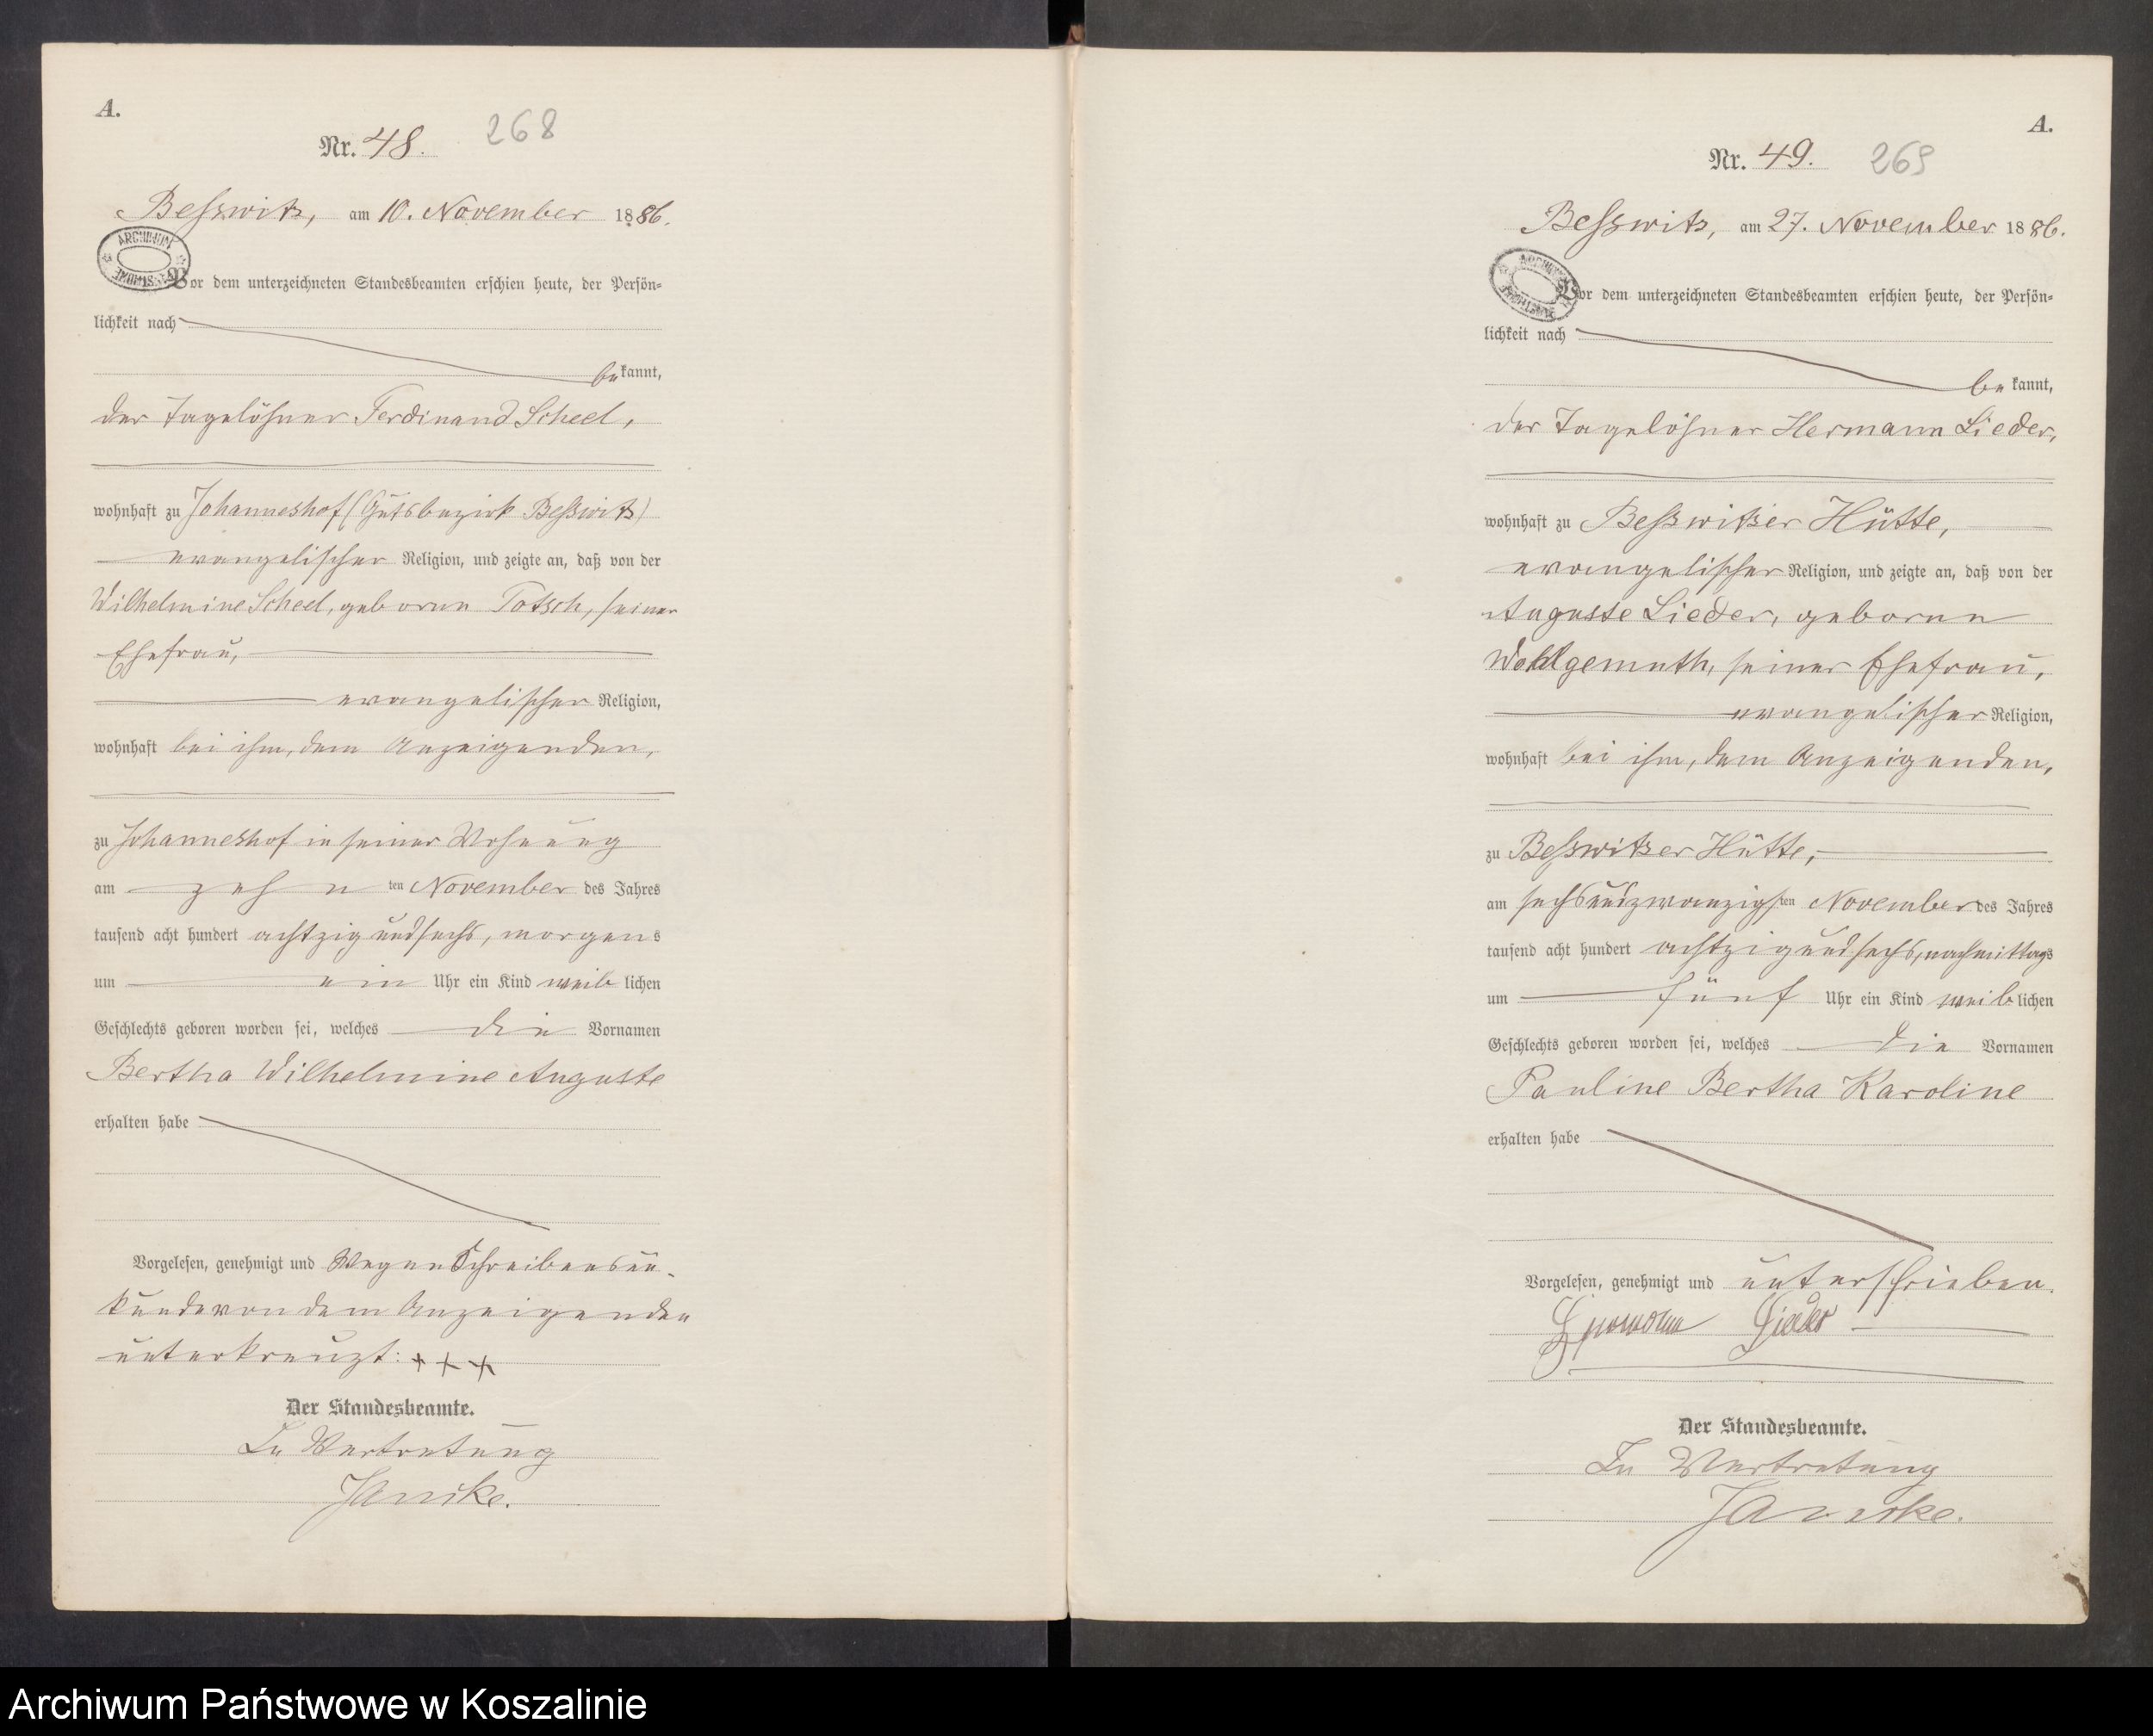 A.
Nr. 48. 268
Beßwitz, am 10. November 1886.
ARCHIWUM
Vor dem unterzeichneten Standesbeamten erschien heute, der Persön=
lichkeit nach
bekannt,
der Tagelöhner Ferdinand Scheel,
wohnhaft zu Johanneshof (Gutsbezirk Beßwitz)
evangelischer Religion, und zeigte an, daß von der
Wilhelmine Scheel, geborne Totsch, seiner
Ehefrau,
evangelischer Religion,
wohnhaft bei ihm, dem Anzeigenden,
zu Johanneshof in seiner Wohnung
am zehn ten November des Jahres
tausend acht hundert achtzig und sechs, morgens
um ein Uhr ein Kind weiblichen
Geschlechts geboren worden sei, welches die Vornamen
Bertha Wilhelmine Auguste
erhalten habe
Vorgelesen, genehmigt und Wegen Schreibensun-
kunde von dem Anzeigenden
unterkreuzt: + + +
Der Standesbeamte.
In Vertretung
Janicke.
A.
Nr. 49. 269
Beßwitz, am 27. November 1886.
ARCHIWUM
Vor dem unterzeichneten Standesbeamten erschien heute, der Persön=
lichkeit nach
bekannt,
der Tagelöhner Hermann Lieder,
wohnhaft zu Beßwitzer Hütte,
evangelischer Religion, und zeigte an, daß von der
Auguste Lieder, geborne
Wohlgemuth, seiner Ehefrau,
evangelischer Religion,
wohnhaft bei ihm, dem Anzeigenden,
zu Beßwitzer Hütte,
am sechsundzwanzigsten November des Jahres
tausend acht hundert achtzig und sechs, nachmittags
um fünf Uhr ein Kind weiblichen
Geschlechts geboren worden sei, welches die Vornamen
Pauline Bertha Karoline
erhalten habe
Vorgelesen, genehmigt und unterschrieben.
Hermann Lieder
Der Standesbeamte.
In Vertretung
Janicke.
Archiwum Państwowe w Koszalinie